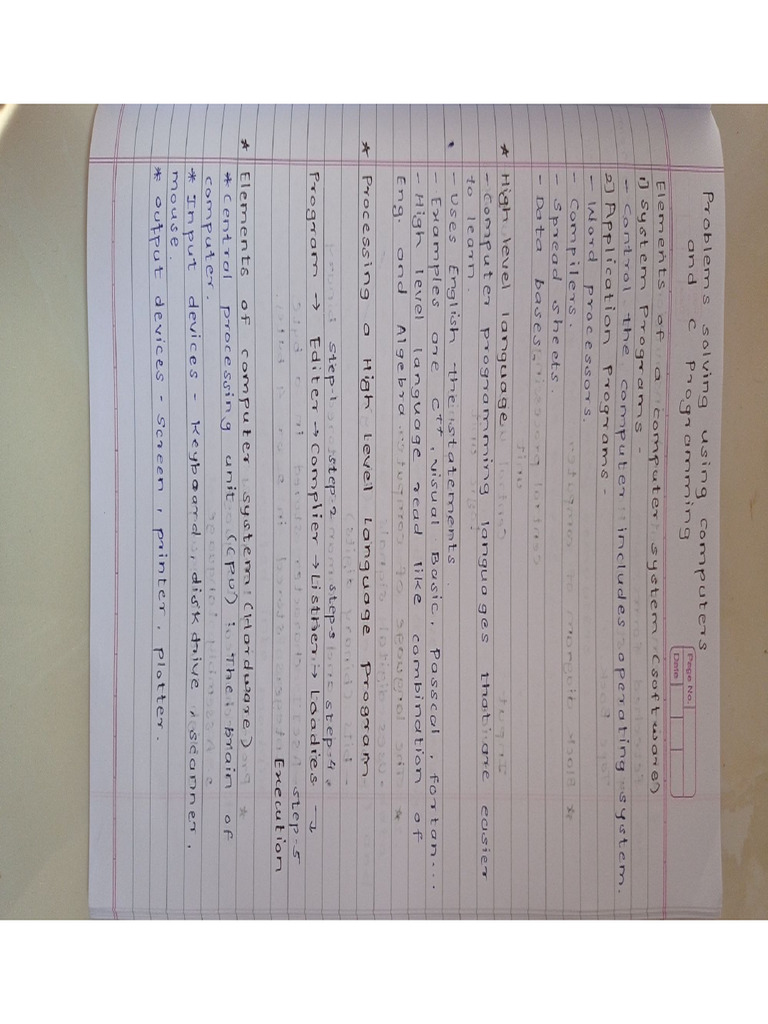 Page No.
Date
Problems solving using computers
and c programming
Elements of a computer system (software)
1) System Programs -
- Control the computer includes operating system.
2) Application programs -
- Word processors.
- Compilers.
- Spread sheets.
- Data bases.
* High level language
- Computer programming languages that are easier
to learn.
- Uses English the statements.
- Examples are C++, Visual Basic, Passcal, fortan...
- High level language read like combination of
Eng. and Algebra.
* Processing a High level Language Program
step-1 step-2 step-3 step-4
Program → Editer → Complier → Listner → Loadies →
step-5
Execution
* Elements of computer system (Hardware)
* Central processing unit (CPU) is The brain of
computer.
* Input devices - Keyboards, disk drive, scanner,
mouse.
* output devices - Screen, printer, plotter.